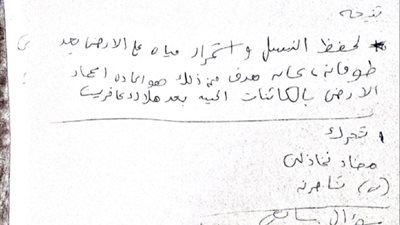 نوحه
* لحفظ النسل و استمرار حياه على الارض بعد
طوفانه، كانه هدف من ذلك هو اعاده اعمار
الارض بالكائنات الحيه بعد هلاك كافرين
تحرك
مضاد تخاذلى
(ت) تشاجرته
سؤال سابع